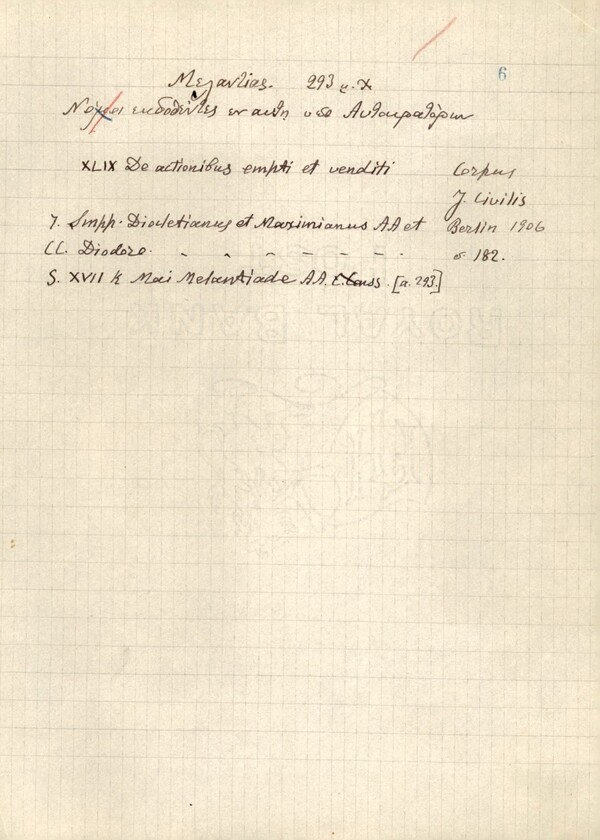 6
Μελαντίας. 293 μ.Χ
Νόμοι εκδοθέντες εν αυτή υπό Αυτοκρατόρων
XLIX De actionibus empti et venditi Corpus
J. Civilis
J. Impp. Diocletianus et Maximianus AA et Berlin 1906
CC. Diodoro. - - - - - - - σ 182.
S. XVII K Mai Melantiade AA. Conss. [a. 293]